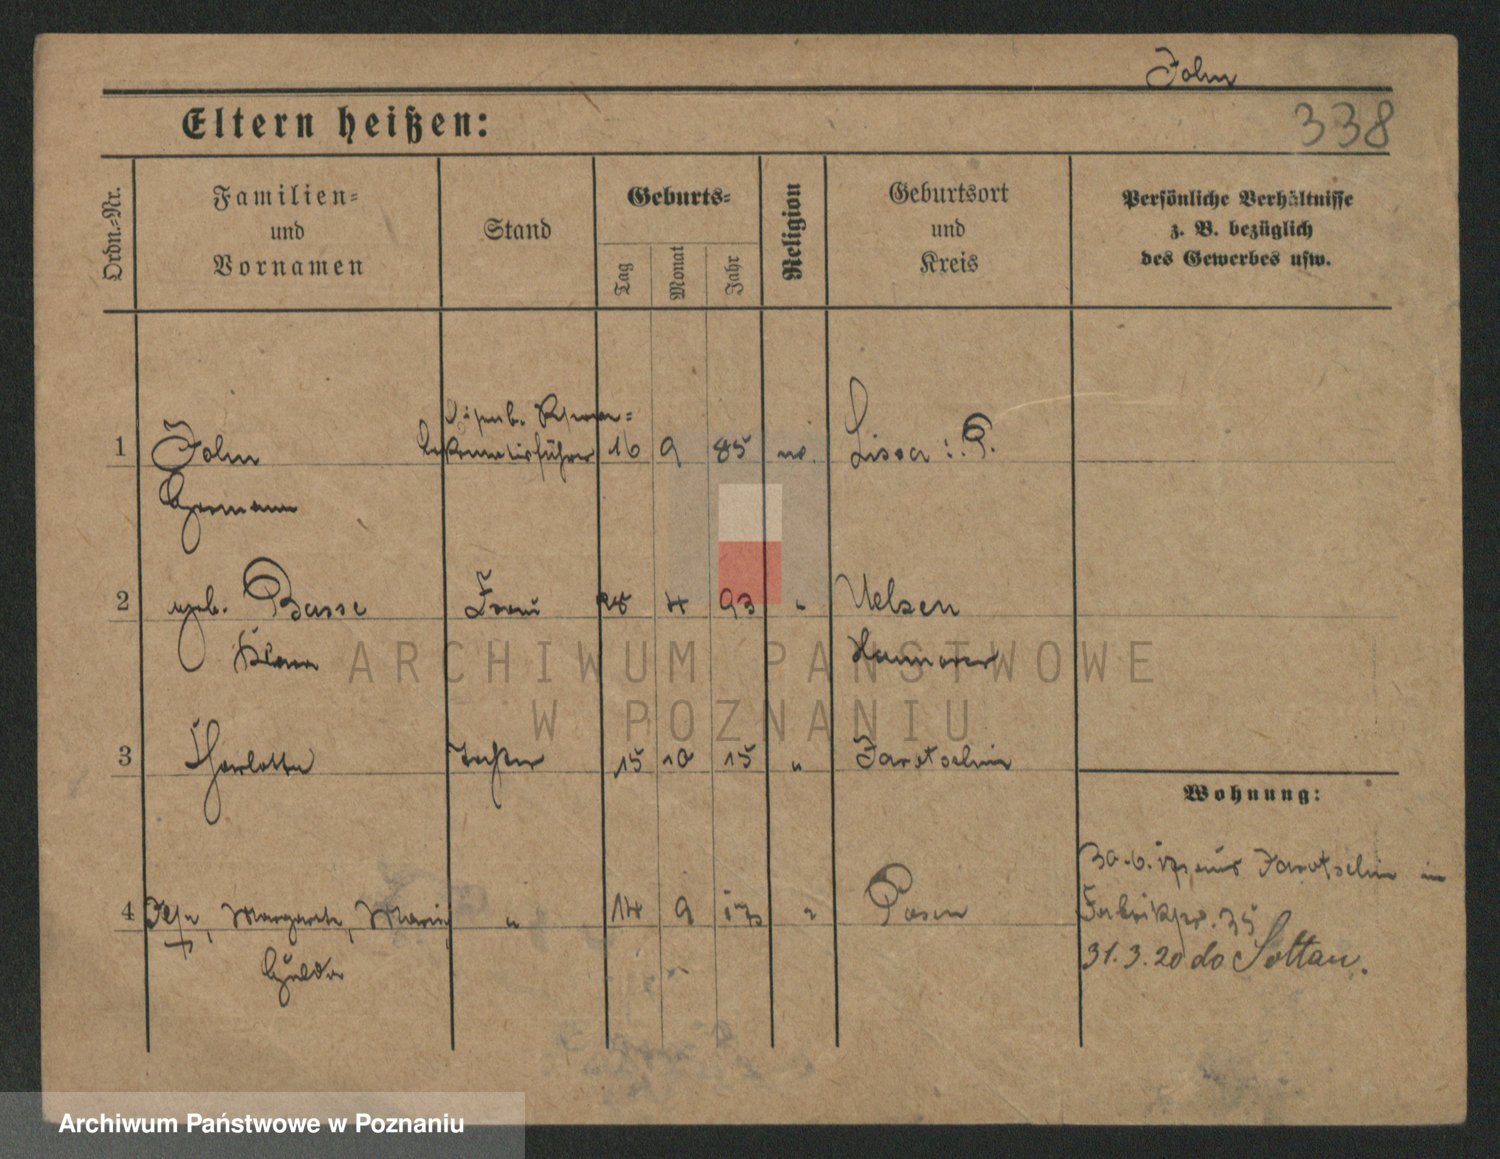 John
Eltern heißen:
338
Ordn.-Nr.
Familien-
und
Vornamen
Stand
Geburts-
Tag
Monat
Jahr
Religion
Geburtsort
und
Kreis
Persönliche Verhältnisse
z. B. bezüglich
des Gewerbes usw.
1 John 16 9 85 Lissa i. P.
Hermann
2 geb. Basse Frau 4 93 " Uelzen
Klara Hannover
3 Charlotte Tochter 15 10 15 " Jarotschin
Wohnung:
4 Ilse, Margarete, Maria " 14 9 17 " Posen
Hulda
30.6.17 aus Jarotschin in
35
31.3.20 do Soltau.
ARCHIWUM PAŃSTWOWE
W POZNANIU
Archiwum Państwowe w Poznaniu